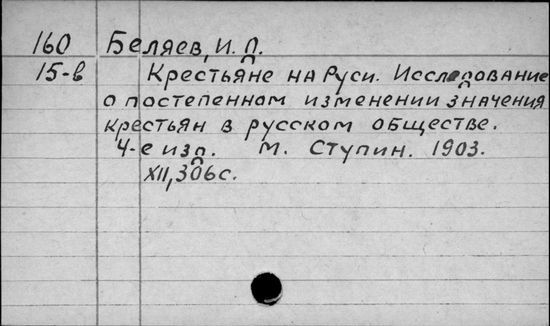 160 Беляев, И. Д.
15-в Крестьяне на Руси. Исследование
о постепенном изменении значения
крестьян в русском обществе.
4-е изд. М. Ступин. 1903.
XII, 306 с.